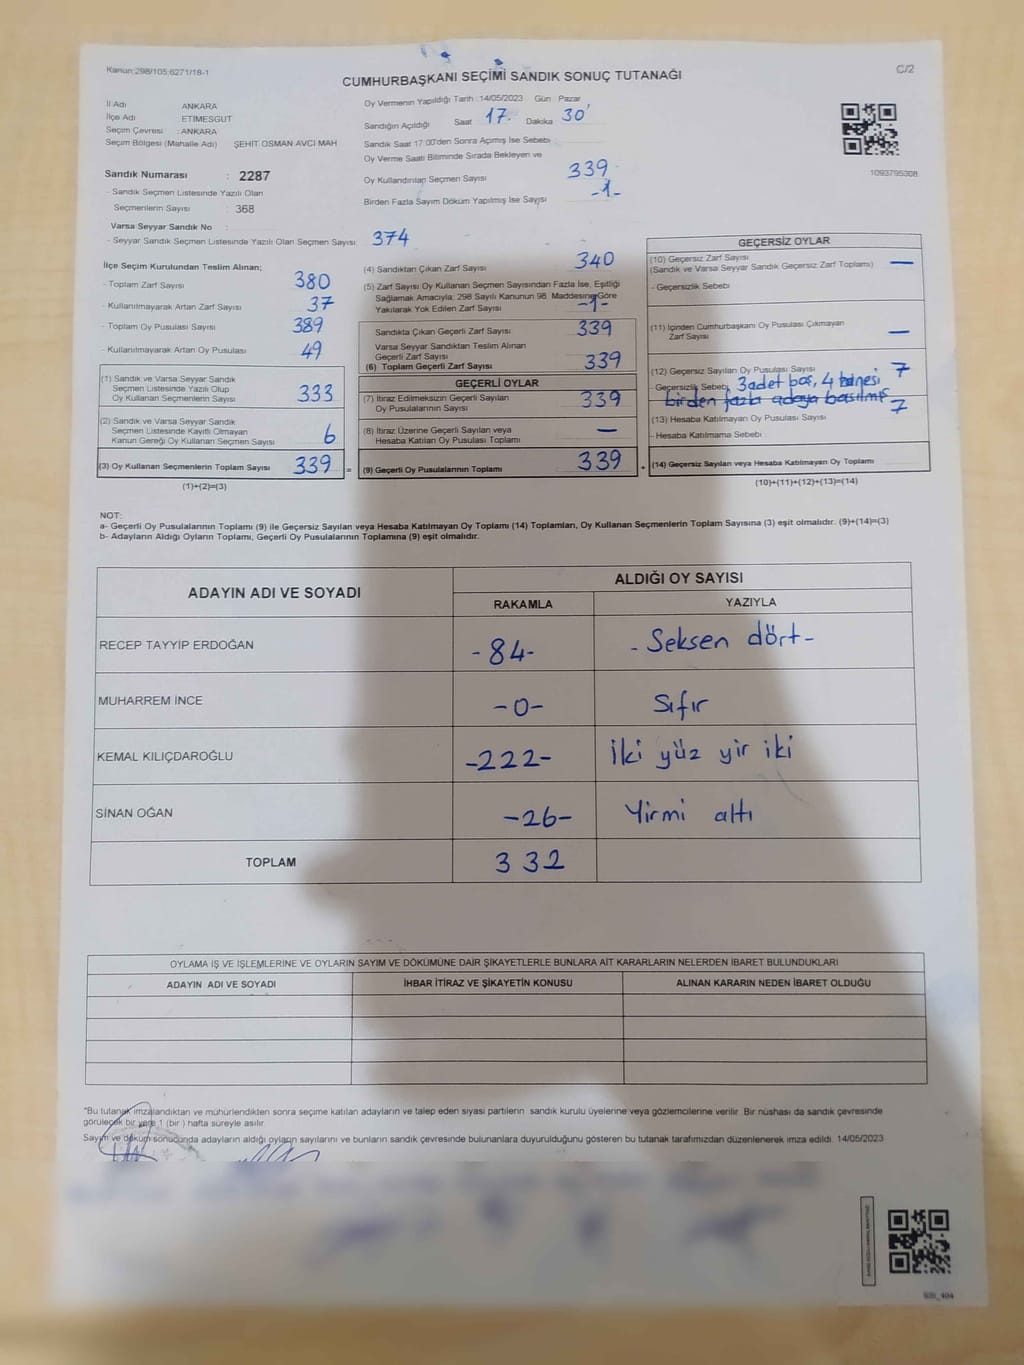 Kanun:298/105;6271/18-1
C/2
CUMHURBAŞKANI SEÇİMİ SANDIK SONUÇ TUTANAĞI
İl Adı : ANKARA
İlçe Adı : ETİMESGUT
Seçim Çevresi : ANKARA
Seçim Bölgesi (Mahalle Adı) ŞEHİT OSMAN AVCI MAH
Sandık Numarası : 2287
- Sandık Seçmen Listesinde Yazılı Olan
Seçmenlerin Sayısı : 368
Varsa Seyyar Sandık No :
- Seyyar Sandık Seçmen Listesinde Yazılı Olan Seçmen Sayısı 374
Oy Vermenin Yapıldığı Tarih :14/05/2023 Gün Pazar
Sandığın Açıldığı Saat 17. Dakika 30'
Sandık Saat 17:00'den Sonra Açımış İse Sebebi :
Oy Verme Saati Bitiminde Sırada Bekleyen ve
Oy Kullandırılan Seçmen Sayısı 339
Birden Fazla Sayım Döküm Yapılmış İse Sayısı -1-
1093795308
İlçe Seçim Kurulundan Teslim Alınan;
- Toplam Zarf Sayısı 380
- Kullanılmayarak Artan Zarf Sayısı 37
- Toplam Oy Pusulası Sayısı 389
- Kullanılmayarak Artan Oy Pusulası 49
(1) Sandık ve Varsa Seyyar Sandık
Seçmen Listesinde Yazılı Olup
Oy Kullanan Seçmenlerin Sayısı 333
(2) Sandık ve Varsa Seyyar Sandık
Seçmen Listesinde Kayıtlı Olmayan
Kanun Gereği Oy Kullanan Seçmen Sayısı 6
(3) Oy Kullanan Seçmenlerin Toplam Sayısı 339 =
(1)+(2)=(3)
(4) Sandıktan Çıkan Zarf Sayısı 340
(5) Zarf Sayısı Oy Kullanan Seçmen Sayısından Fazla İse, Eşitliği
Sağlamak Amacıyla; 298 Sayılı Kanunun 98. Maddesine Göre
Yakılarak Yok Edilen Zarf Sayısı -1-
Sandıkta Çıkan Geçerli Zarf Sayısı 339
Varsa Seyyar Sandıktan Teslim Alınan
Geçerli Zarf Sayısı
(6) Toplam Geçerli Zarf Sayısı 339
GEÇERLİ OYLAR
(7) İtiraz Edilmeksizin Geçerli Sayılan
Oy Pusulalarının Sayısı 339
(8) İtiraz Üzerine Geçerli Sayılan veya
Hesaba Katılan Oy Pusulası Toplamı —
(9) Geçerli Oy Pusulalarının Toplamı 339 +
GEÇERSİZ OYLAR
(10) Geçersiz Zarf Sayısı
(Sandık ve Varsa Seyyar Sandık Geçersiz Zarf Toplamı) —
- Geçersizlik Sebebi
(11) İçinden Cumhurbaşkanı Oy Pusulası Çıkmayan
Zarf Sayısı —
(12) Geçersiz Sayılan Oy Pusulası Sayısı 7
- Geçersizlik Sebebi 3 adet boş, 4 tanesi
birden fazla adaya basılmış
7
(13) Hesaba Katılmayan Oy Pusulası Sayısı
- Hesaba Katılmama Sebebi
(14) Geçersiz Sayılan veya Hesaba Katılmayan Oy Toplamı
(10)+(11)+(12)+(13)=(14)
NOT:
a- Geçerli Oy Pusulalarının Toplamı (9) ile Geçersiz Sayılan veya Hesaba Katılmayan Oy Toplamı (14) Toplamları, Oy Kullanan Seçmenlerin Toplam Sayısına (3) eşit olmalıdır. (9)+(14)=(3)
b- Adayların Aldığı Oyların Toplamı, Geçerli Oy Pusulalarının Toplamına (9) eşit olmalıdır.
ADAYIN ADI VE SOYADI
ALDIĞI OY SAYISI
RAKAMLA YAZIYLA
RECEP TAYYİP ERDOĞAN -84- - Seksen dört-
MUHARREM İNCE -0- Sıfır
KEMAL KILIÇDAROĞLU -222- İki yüz yir iki
SİNAN OĞAN -26- Yirmi altı
TOPLAM 332
OYLAMA İŞ VE İŞLEMLERİNE VE OYLARIN SAYIM VE DÖKÜMÜNE DAİR ŞİKAYETLERLE BUNLARA AİT KARARLARIN NELERDEN İBARET BULUNDUKLARI
ADAYIN ADI VE SOYADI İHBAR İTİRAZ VE ŞİKAYETİN KONUSU ALINAN KARARIN NEDEN İBARET OLDUĞU
*Bu tutanak imzalandıktan ve mühürlendikten sonra seçime katılan adayların ve talep eden siyasi partilerin sandık kurulu üyelerine veya gözlemcilerine verilir. Bir nüshası da sandık çevresinde
görülecek bir yere 1 (bir ) hafta süreyle asılır.
Sayım ve döküm sonucunda adayların aldığı oyların sayılarını ve bunların sandık çevresinde bulunanlara duyurulduğunu gösteren bu tutanak tarafımızdan düzenlenerek imza edildi. 14/05/2023